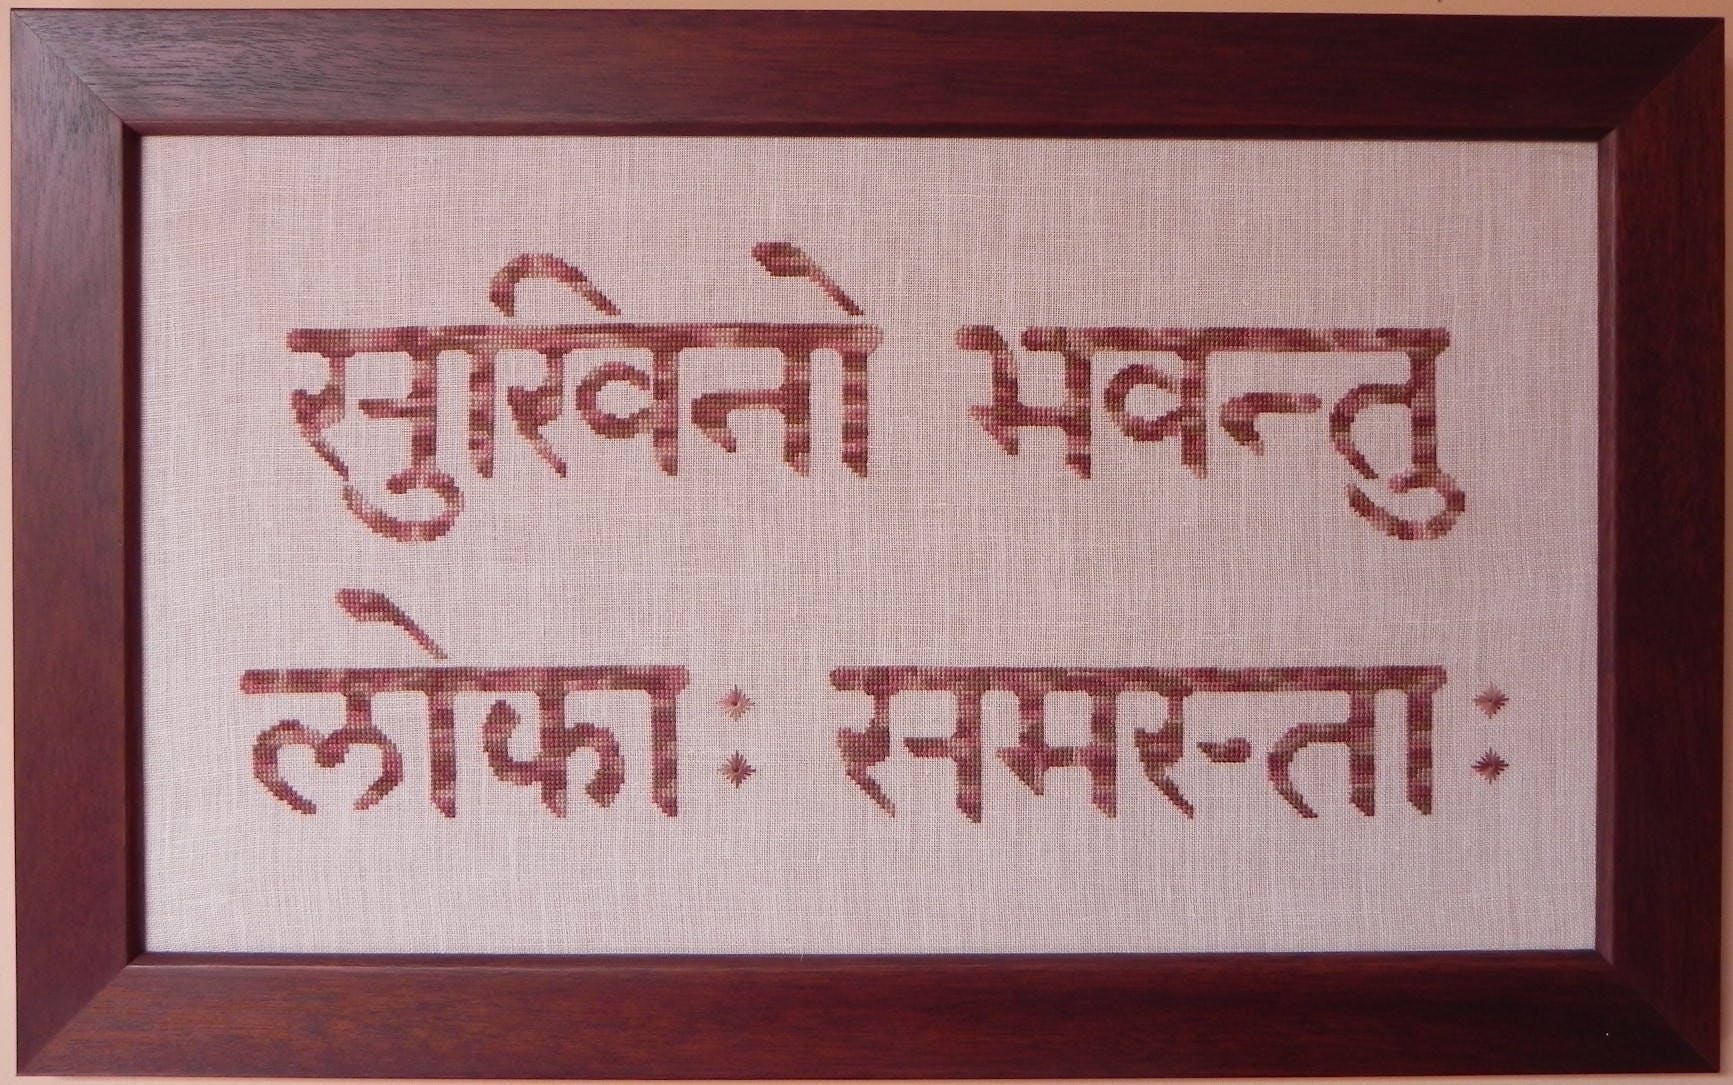 सुखिनो भवन्तु
लोकाः समस्ताः